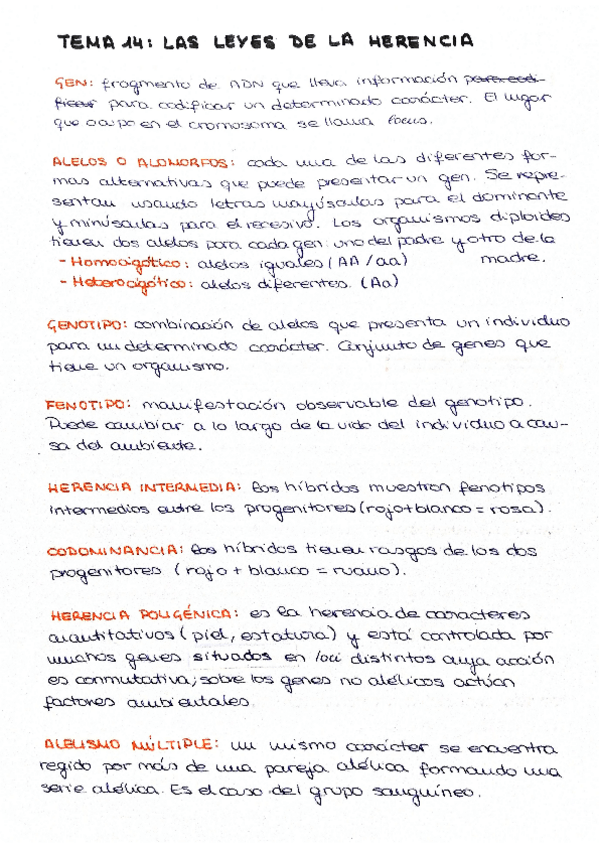 TEMA 14: LAS LEYES DE LA HERENCIA
GEN: fragmento de ADN que lleva información para codi-
ficar para codificar un determinado carácter. El lugar
que ocupa en el cromosoma se llama locus.
ALELOS O ALOMORFOS: cada una de las diferentes for-
mas alternativas que puede presentar un gen. Se repre-
sentan usando letras mayúsculas para el dominante
y minúsculas para el recesivo. Los organismos diploides
tienen dos alelos para cada gen: uno del padre y otro de la
- Homocigótico: alelos iguales (AA/aa) madre.
- Heterocigótico: alelos diferentes. (Aa)
GENOTIPO: combinación de alelos que presenta un individuo
para un determinado carácter. Conjunto de genes que
tiene un organismo.
FENOTIPO: manifestación observable del genotipo.
Puede cambiar a lo largo de la vida del individuo a cau-
sa del ambiente.
HERENCIA INTERMEDIA: los híbridos muestran fenotipos
intermedios entre los progenitores (rojo+blanco = rosa).
CODOMINANCIA: los híbridos tienen rasgos de los dos
progenitores (rojo + blanco = ruano).
HERENCIA POLIGÉNICA: es la herencia de caracteres
cuantitativos (piel, estatura) y está controlada por
muchos genes situados en loci distintos cuya acción
es conmutativa; sobre los genes no alélicos actúan
factores ambientales.
ALELISMO MÚLTIPLE: un mismo carácter se encuentra
regido por más de una pareja alélica formando una
serie alélica. Es el caso del grupo sanguíneo.